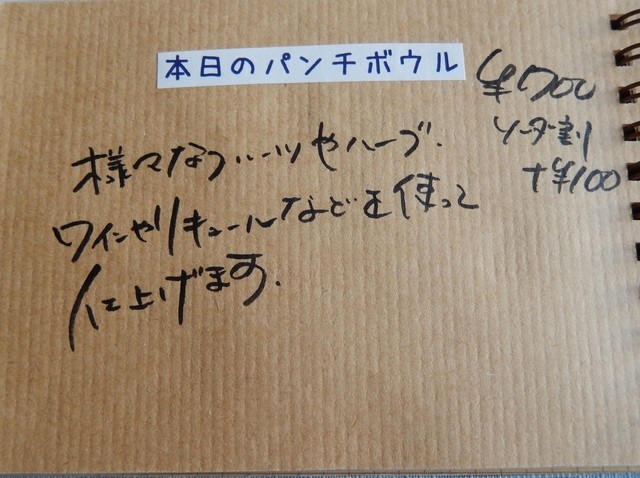 本日のパンチボウル
¥700
ソーダ割り
+¥100
様々なフルーツやハーブ、
ワインやリキュールなどを使って
仕上げます。